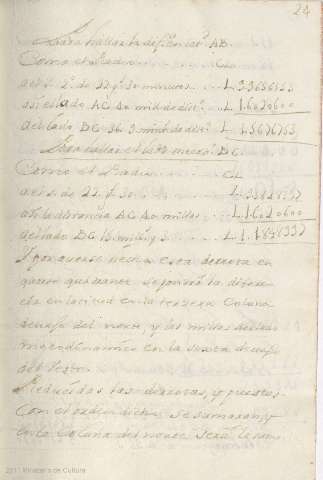 24
Para hallar la dif.ª en lat.ⁿ AB
Como el Radio CL
al s. 2.º de 22 g.s 30 minutos L 9.9656153
así el lado AC 40 mill.s de dist.ª L 1.6020600
al lado BC 36 9 mill.s de dist.ª L 1.5676753
Para hallar el
Como el Radio CL
al s. de 22 g.s 30 L 9.5828397
así la distancia AC 40 millas L 1.6020600
al lado BC 15 millas 3 L 1.1848997
Y por que se hecha esta derrota en
quarto quadrante se pondrá la diferen
cia en latitud en la tercera Coluna
devajo del norte, y las millas del lado
en la sexta devajo
del Veste.
Reducidas las derrotas, y puestas
Con el orden dicho se sumaran, y
en la Coluna del norte será la sum
2011 Ministerio de Cultura